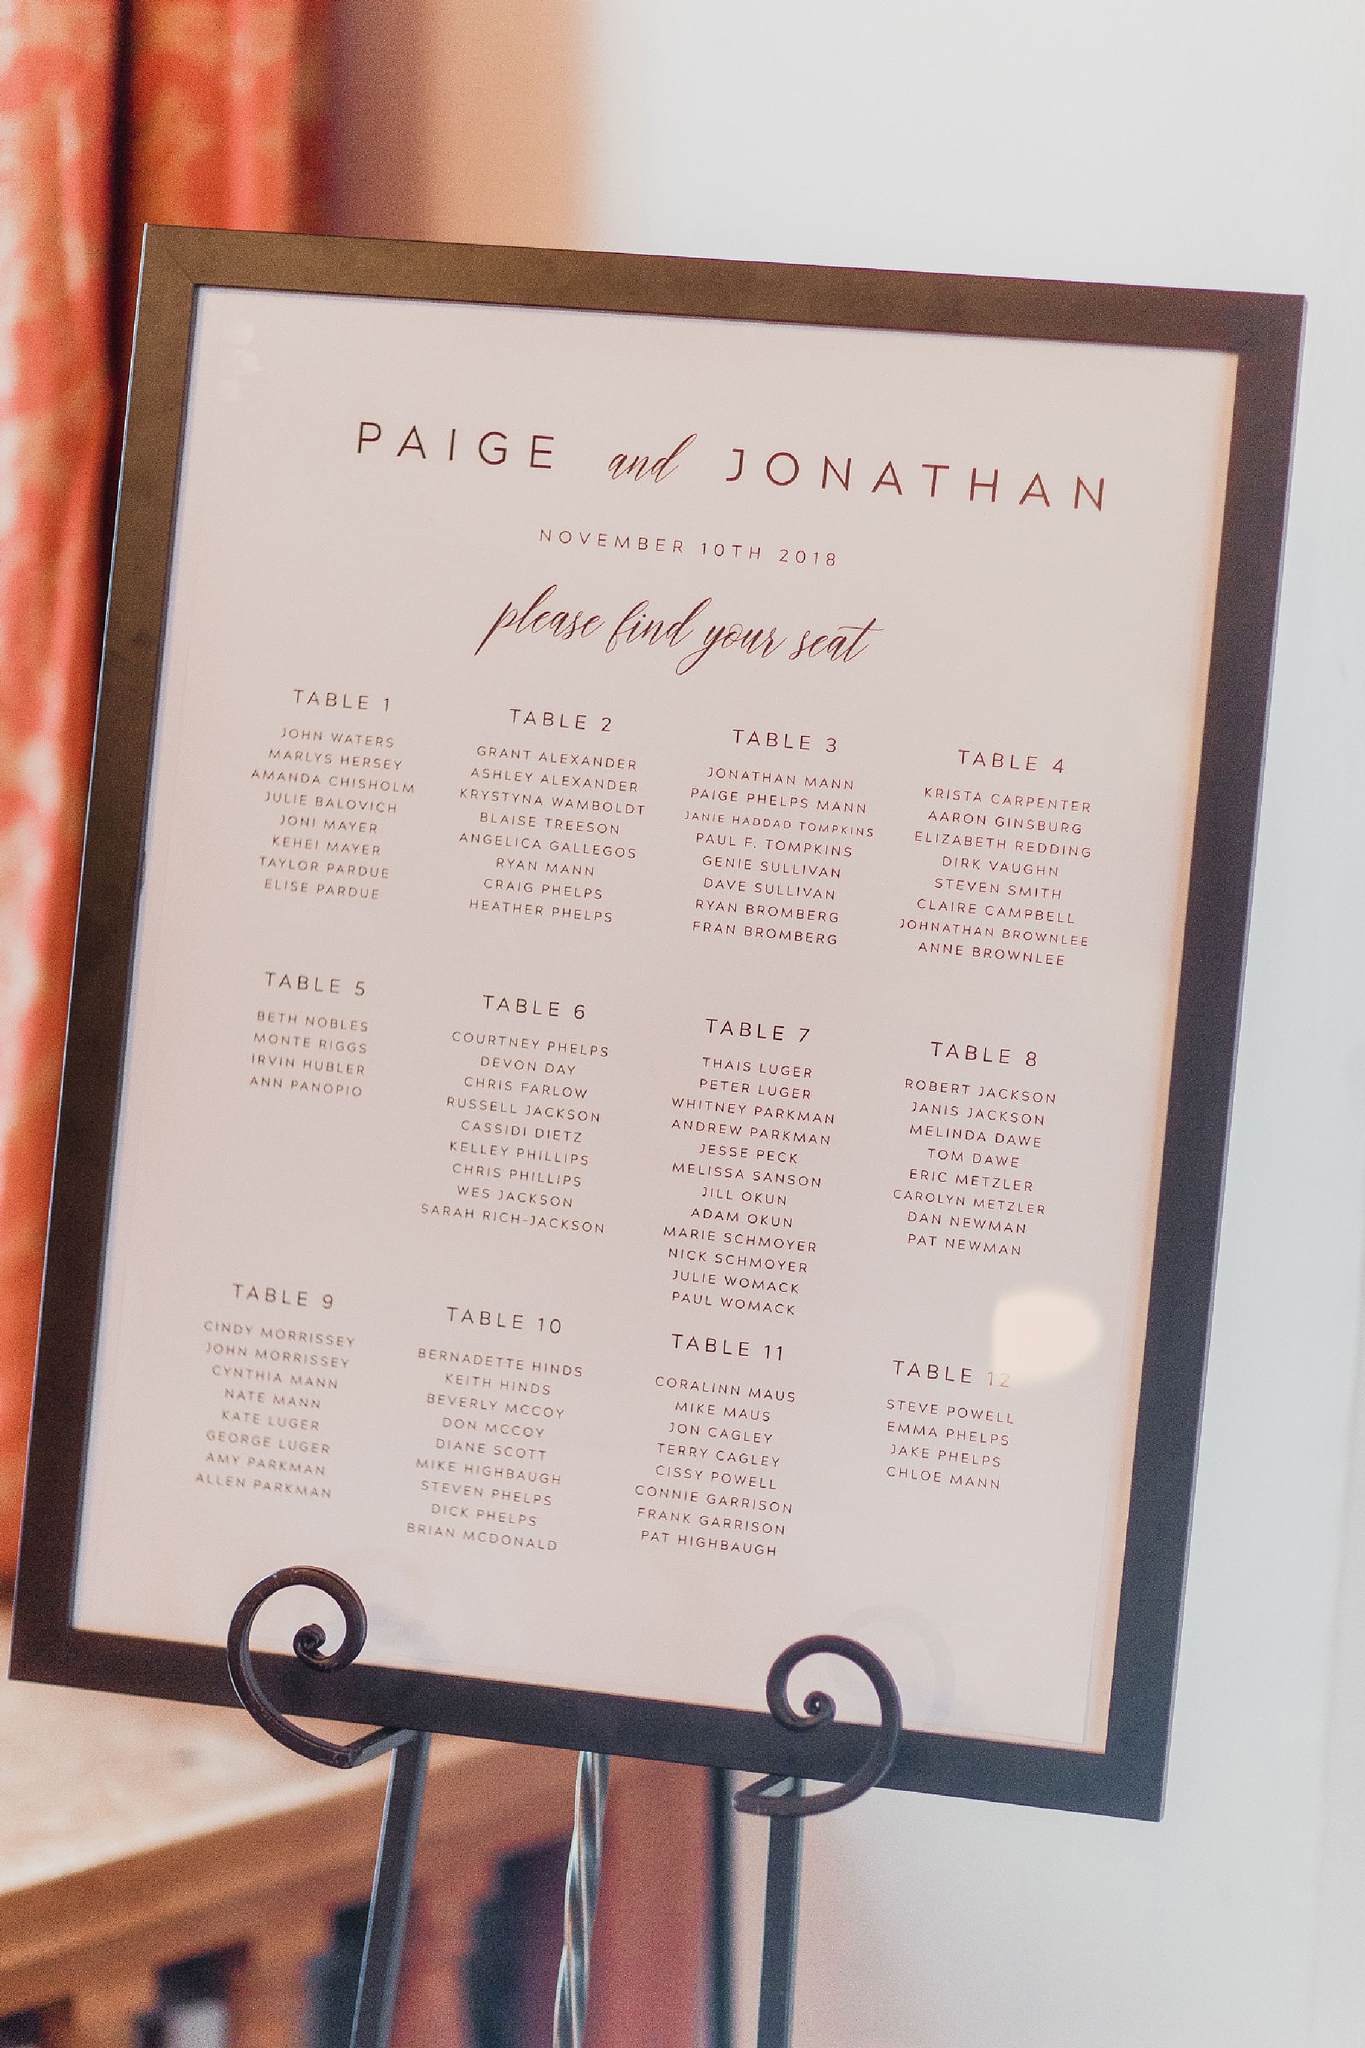 PAIGE and JONATHAN
NOVEMBER 10TH 2018
please find your seat
TABLE 1
JOHN WATERS
MARLYS HERSEY
AMANDA CHISHOLM
JULIE BALOVICH
JONI MAYER
KEHEI MAYER
TAYLOR PARDUE
ELISE PARDUE
TABLE 2
GRANT ALEXANDER
ASHLEY ALEXANDER
KRYSTYNA WAMBOLDT
BLAISE TREESON
ANGELICA GALLEGOS
RYAN MANN
CRAIG PHELPS
HEATHER PHELPS
TABLE 3
JONATHAN MANN
PAIGE PHELPS MANN
JANIE HADDAD TOMPKINS
PAUL F. TOMPKINS
GENIE SULLIVAN
DAVE SULLIVAN
RYAN BROMBERG
FRAN BROMBERG
TABLE 4
KRISTA CARPENTER
AARON GINSBURG
ELIZABETH REDDING
DIRK VAUGHN
STEVEN SMITH
CLAIRE CAMPBELL
JOHNATHAN BROWNLEE
ANNE BROWNLEE
TABLE 5
BETH NOBLES
MONTE RIGGS
IRVIN HUBLER
ANN PANOPIO
TABLE 6
COURTNEY PHELPS
DEVON DAY
CHRIS FARLOW
RUSSELL JACKSON
CASSIDI DIETZ
KELLEY PHILLIPS
CHRIS PHILLIPS
WES JACKSON
SARAH RICH-JACKSON
TABLE 7
THAIS LUGER
PETER LUGER
WHITNEY PARKMAN
ANDREW PARKMAN
JESSE PECK
MELISSA SANSON
JILL OKUN
ADAM OKUN
MARIE SCHMOYER
NICK SCHMOYER
JULIE WOMACK
PAUL WOMACK
TABLE 8
ROBERT JACKSON
JANIS JACKSON
MELINDA DAWE
TOM DAWE
ERIC METZLER
CAROLYN METZLER
DAN NEWMAN
PAT NEWMAN
TABLE 9
CINDY MORRISSEY
JOHN MORRISSEY
CYNTHIA MANN
NATE MANN
KATE LUGER
GEORGE LUGER
AMY PARKMAN
ALLEN PARKMAN
TABLE 10
BERNADETTE HINDS
KEITH HINDS
BEVERLY MCCOY
DON MCCOY
DIANE SCOTT
MIKE HIGHBAUGH
STEVEN PHELPS
DICK PHELPS
BRIAN MCDONALD
TABLE 11
CORALINN MAUS
MIKE MAUS
JON CAGLEY
TERRY CAGLEY
CISSY POWELL
CONNIE GARRISON
FRANK GARRISON
PAT HIGHBAUGH
TABLE 12
STEVE POWELL
EMMA PHELPS
JAKE PHELPS
CHLOE MANN